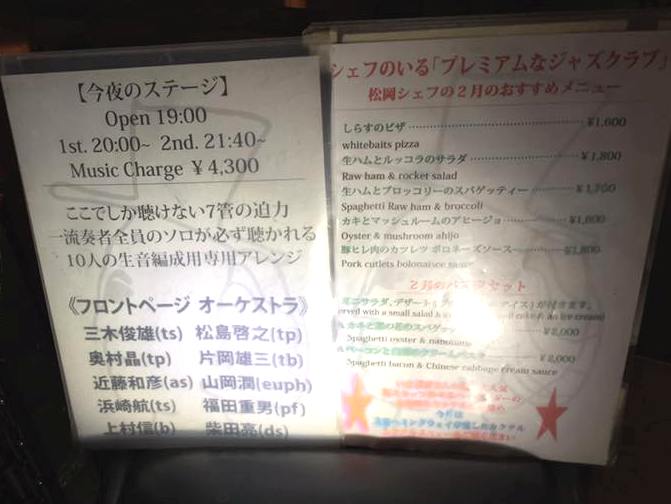 【今夜のステージ】
Open 19:00
1st. 20:00~ 2nd. 21:40~
Music Charge ¥4,300
ここでしか聴けない7管の迫力
一流奏者全員のソロが必ず聴かれる
10人の生音編成用専用アレンジ
《フロントページ オーケストラ》
三木俊雄(ts) 松島啓之(tp)
奥村晶(tp) 片岡雄三(tb)
近藤和彦(as) 山岡潤(euph)
浜崎航(ts) 福田重男(pf)
上村信(b) 柴田亮(ds)
シェフのいる「プレミアムなジャズクラブ」
松岡シェフの2月のおすすめメニュー
しらすのピザ ¥1,600
whitebaits pizza
生ハムとルッコラのサラダ ¥1,800
Raw ham & rocket salad
生ハムとブロッコリーのスパゲッティー
Spaghetti Raw ham & broccoli
カキとマッシュルームのアヒージョ
Oyster & mushroom ahijo
豚ヒレ肉のカツレツ ボロネーズソース
Pork cutlets bolonaisee sauce
2月の セット
サラダ、デザート アイス)が付きます。
served with a small salad & an ice cream)
カキと菜の花のスパゲッ ¥2,000
Spaghetti oyster &
ベーコンと ¥2,000
Spaghetti bacon & Chinese cabbage cream sauce
今月は